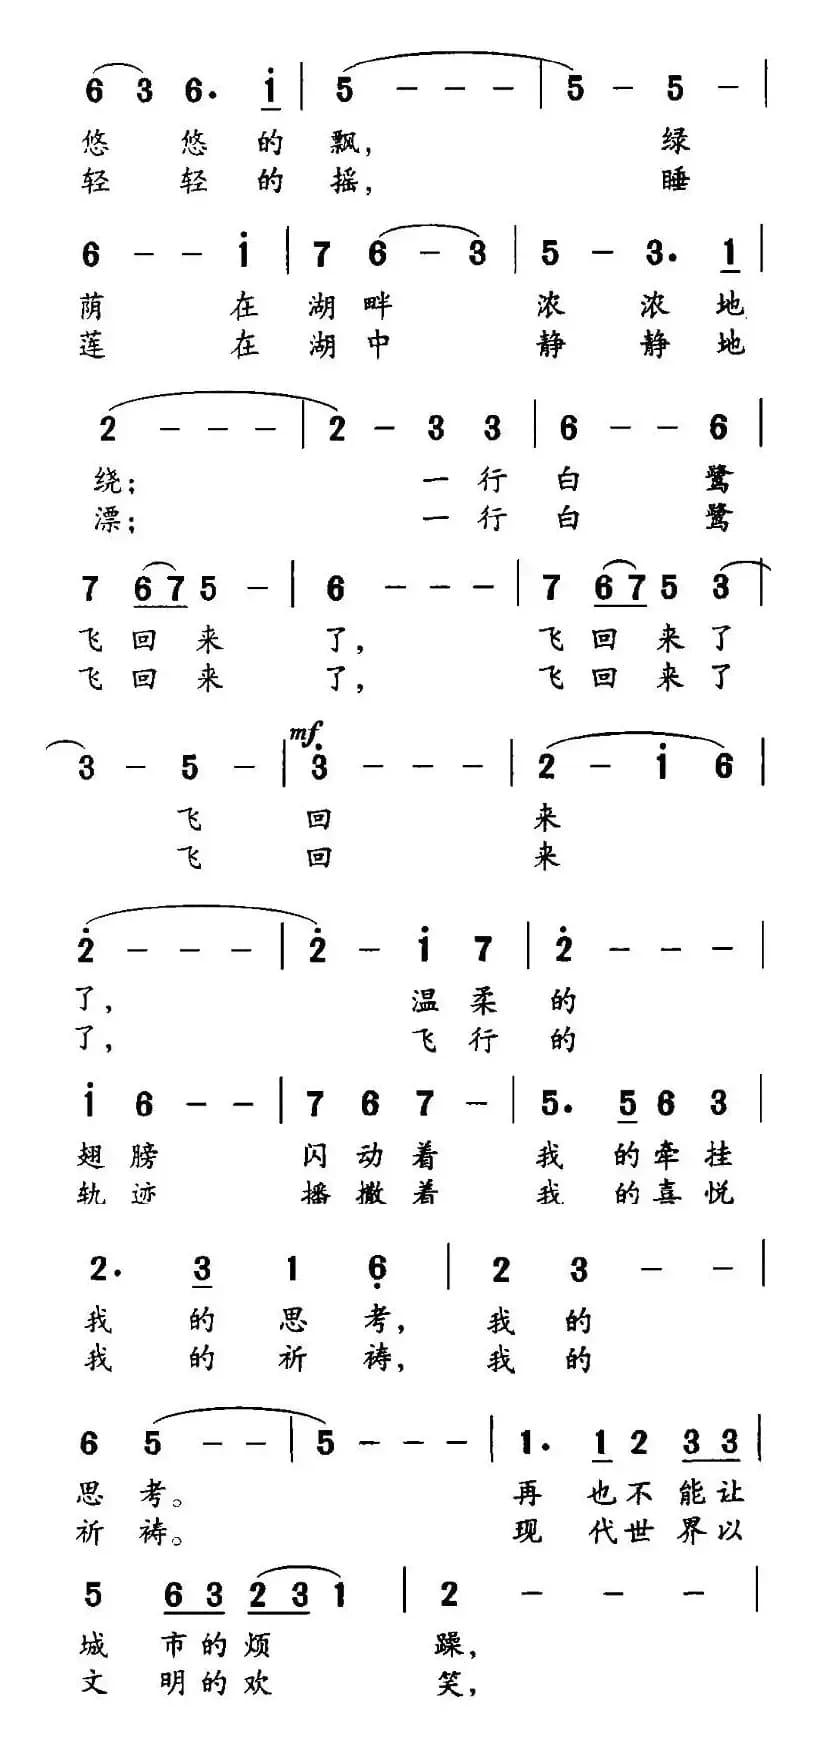 6 3 6. i | 5 - - - | 5 - 5 - |
悠 悠 的 飘， 绿
轻 轻 的 摇， 睡
6 - - i | 7 6 - 3 | 5 - 3. 1 |
荫 在 湖 畔 浓 浓 地
莲 在 湖 中 静 静 地
2 - - - | 2 - 3 3 | 6 - - 6 |
绕； 一 行 白 鹭
漂； 一 行 白 鹭
7 6 7 5 - | 6 - - - | 7 6 7 5 3 |
飞 回 来 了， 飞 回 来 了
飞 回 来 了， 飞 回 来 了
mf
3 - 5 - | 3 - - - | 2 - i 6 |
飞 回 来
飞 回 来
2 - - - | 2 - i 7 | 2 - - - |
了， 温 柔 的
了， 飞 行 的
i 6 - - | 7 6 7 - | 5. 5 6 3 |
翅 膀 闪 动 着 我 的 牵 挂
轨 迹 播 撒 着 我 的 喜 悦
2. 3 1 6 | 2 3 - - |
我 的 思 考， 我 的
我 的 祈 祷， 我 的
6 5 - - | 5 - - - | 1. 1 2 3 3 |
思 考。 再 也 不 能 让
祈 祷。 现 代 世 界 以
5 6 3 2 3 1 | 2 - - - |
城 市 的 烦 躁，
文 明 的 欢 笑，